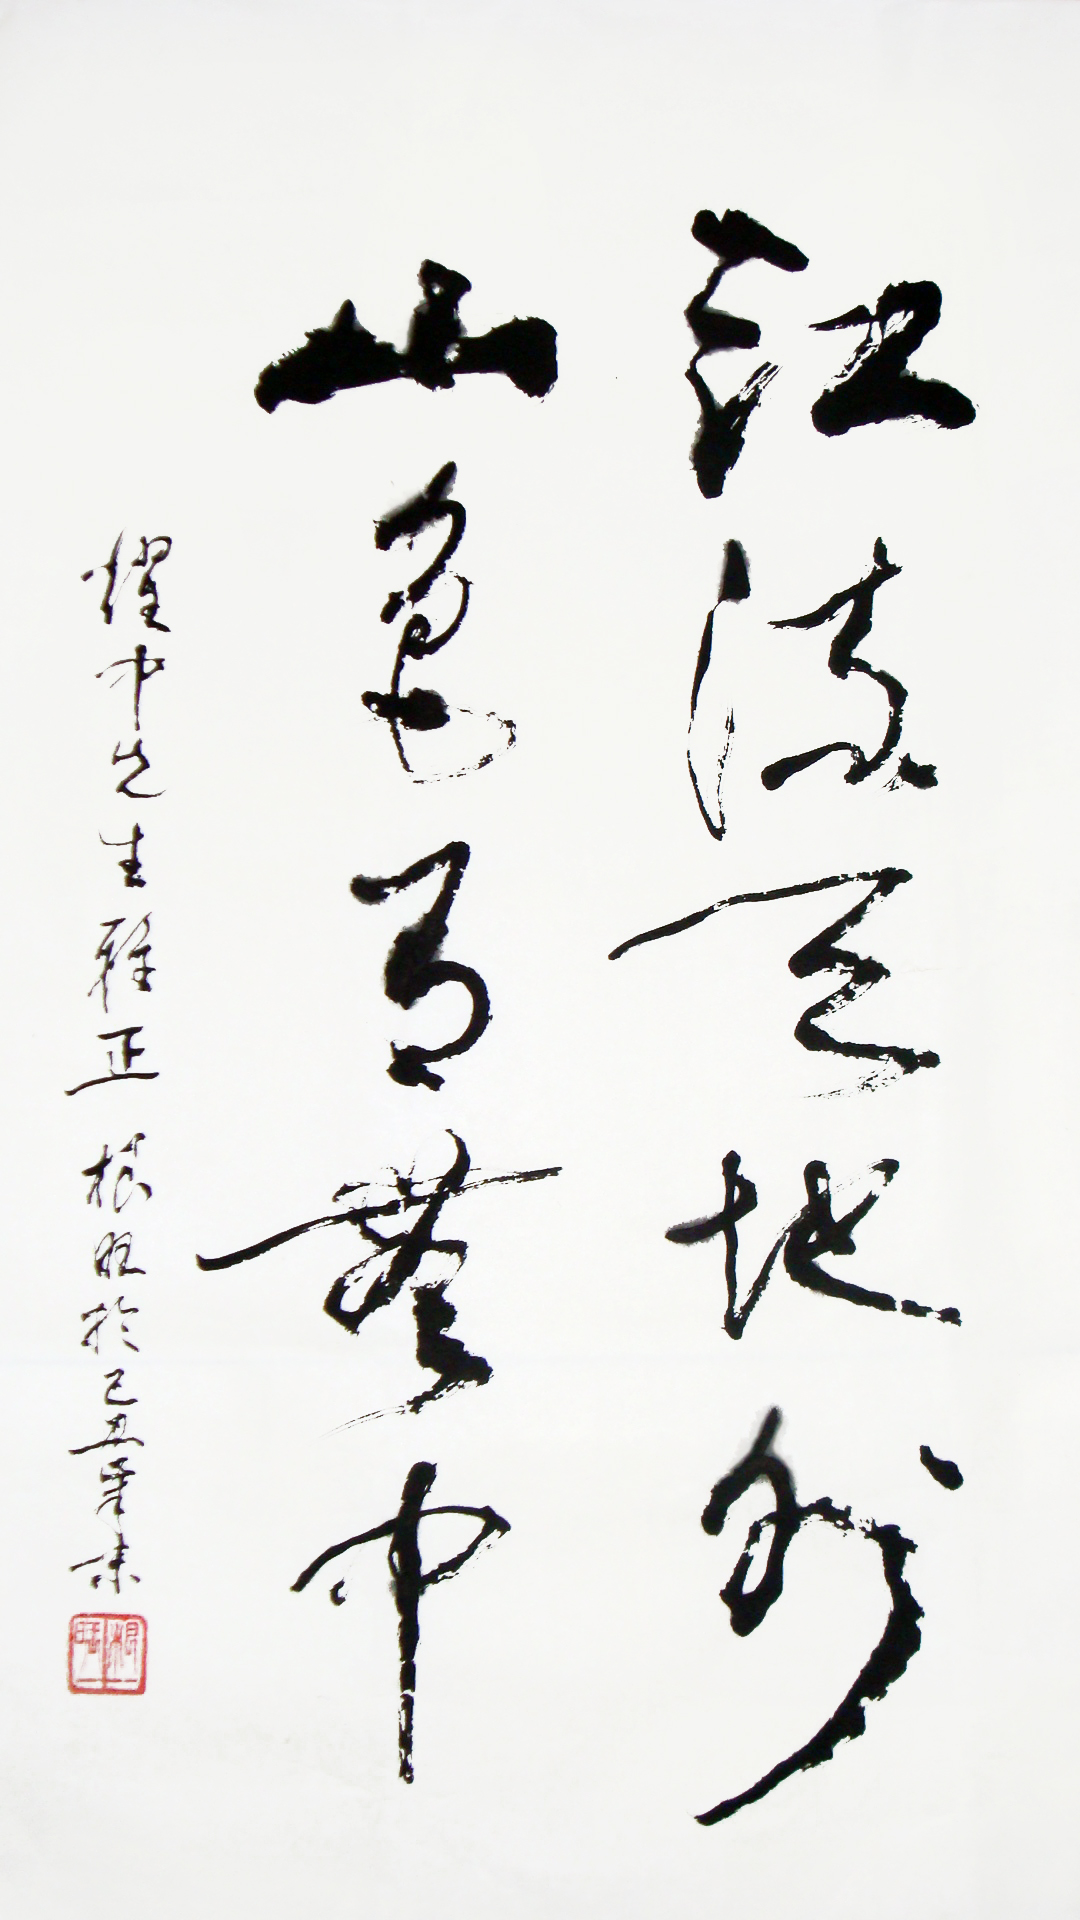 江流天地外
山色有無中
耀中先生雅正 根旺於己丑年末
根旺